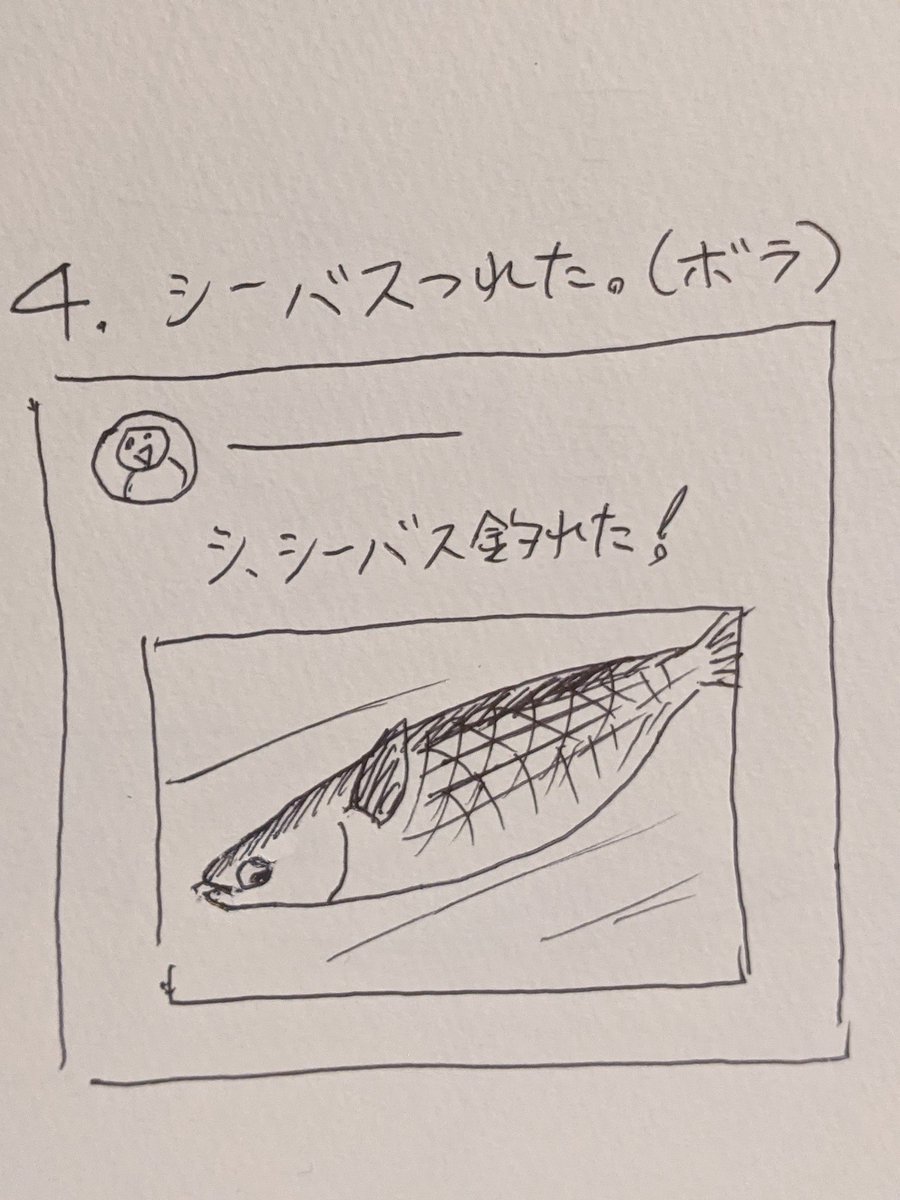 4. シーバスつれた。(ボラ)
シ、シーバス釣れた!